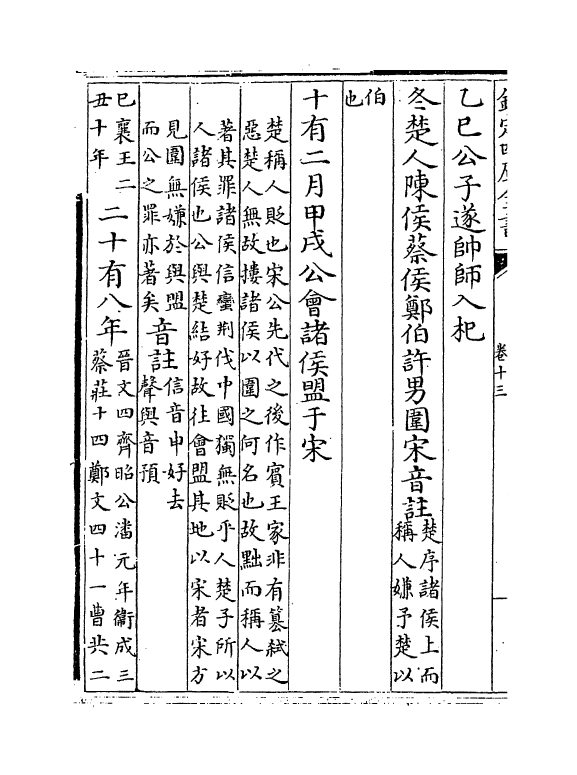 欽定四庫全書
卷十三
乙巳公子遂帥師入杞
冬楚人陳侯蔡侯鄭伯許男圍宋音註楚序諸侯上而
稱人嫌予楚以
伯
也
十有二月甲戌公會諸侯盟于宋
楚稱人貶也宋公先代之後作賓王家非有篡弑之
惡楚人無故摟諸侯以圍之何名也故黜而稱人以
著其罪諸侯信蠻荆伐中國獨無貶乎人楚子所以
人諸侯也公與楚結好故往會盟其地以宋者宋方
見圍無嫌於與盟
而公之罪亦著矣音註信音申好去
聲與音預
巳襄王二
丑十年
二十有八年晉文四齊昭公潘元年衞成三
蔡莊十四鄭文四十一曹共二